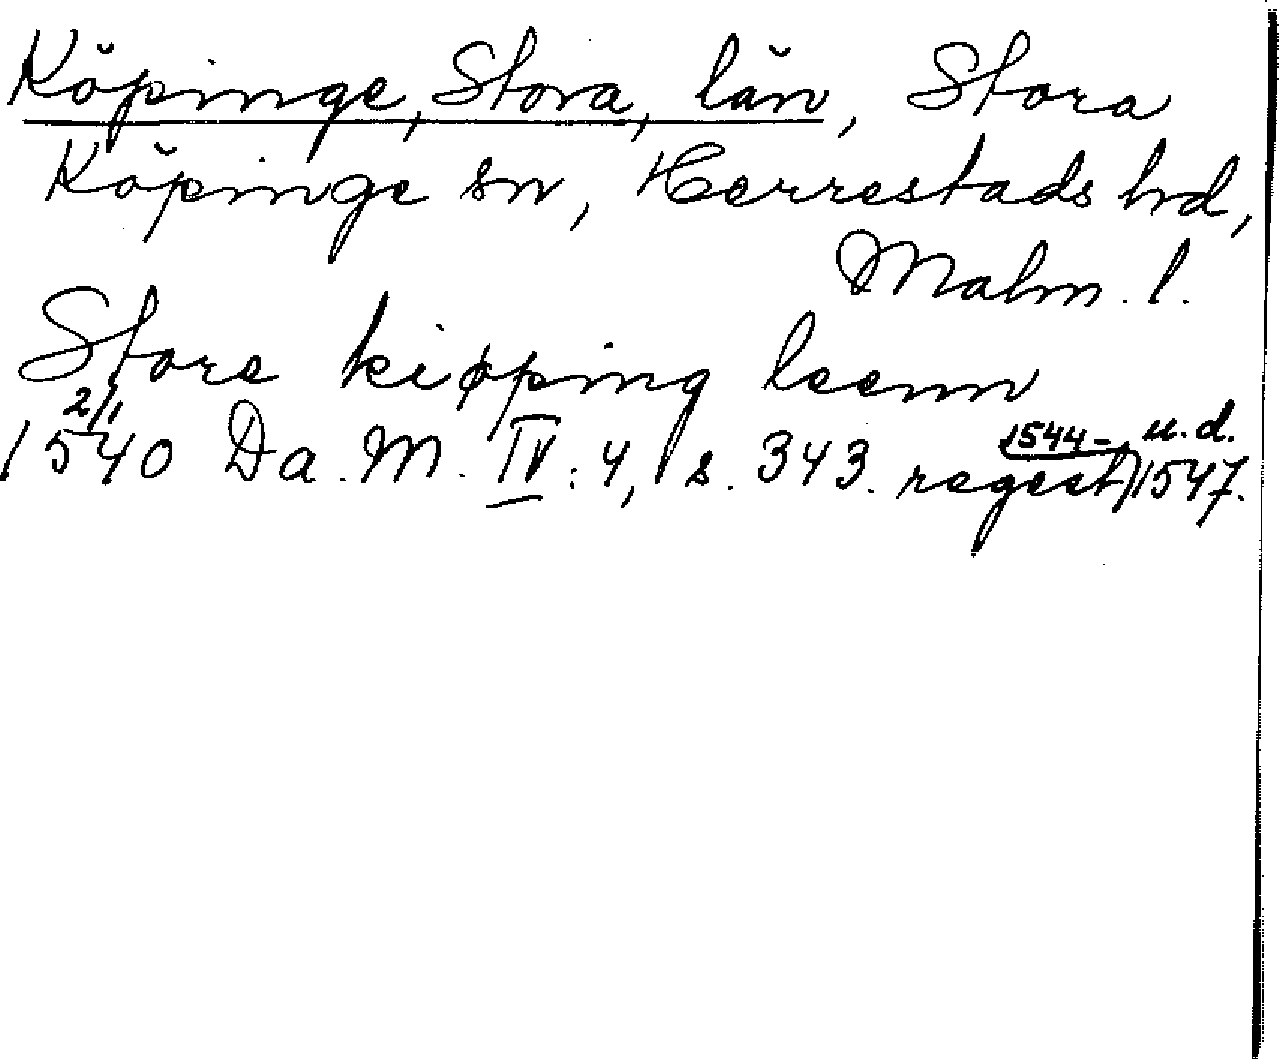 Köpinge, Stora, län, Stora
Köpinge sn, Herrestads hd,
Malm. l.
Store kiøping leenn
2/1 1544- u.d.
1540 Da. M. IV: 4, s. 343. regest) 1547.